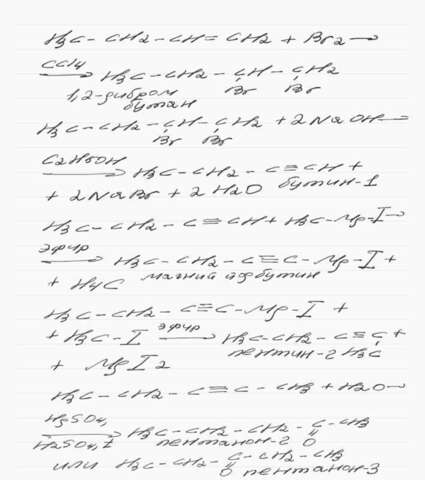 H3C – CH2 – CH = CH2 + Br2 →
CCl4 → H3C – CH2 – CH – CH2
Br Br
1,2-дибром
бутан
H3C – CH2 – CH – CH2 + 2NaOH →
Br Br
C2H5OH → H3C – CH2 – C ≡ CH +
+ 2NaBr + 2H2O бутин-1
H3C – CH2 – C ≡ CH + H3C – Mg – I →
эфир → H3C – CH2 – C ≡ C – Mg – I +
+ H4C магний бутин
H3C – CH2 – C ≡ C – Mg – I +
+ H3C – I эфир → H3C – CH2 – C ≡ C +
+ MgI2 пентин-2 H3C
H3C – CH2 – C ≡ C – CH3 + H2O →
H2SO4, t → H3C – CH2 – CH2 – C – CH3
пентанон-2 O
или H3C – CH2 – C – CH2 – CH3
O пентанон-3